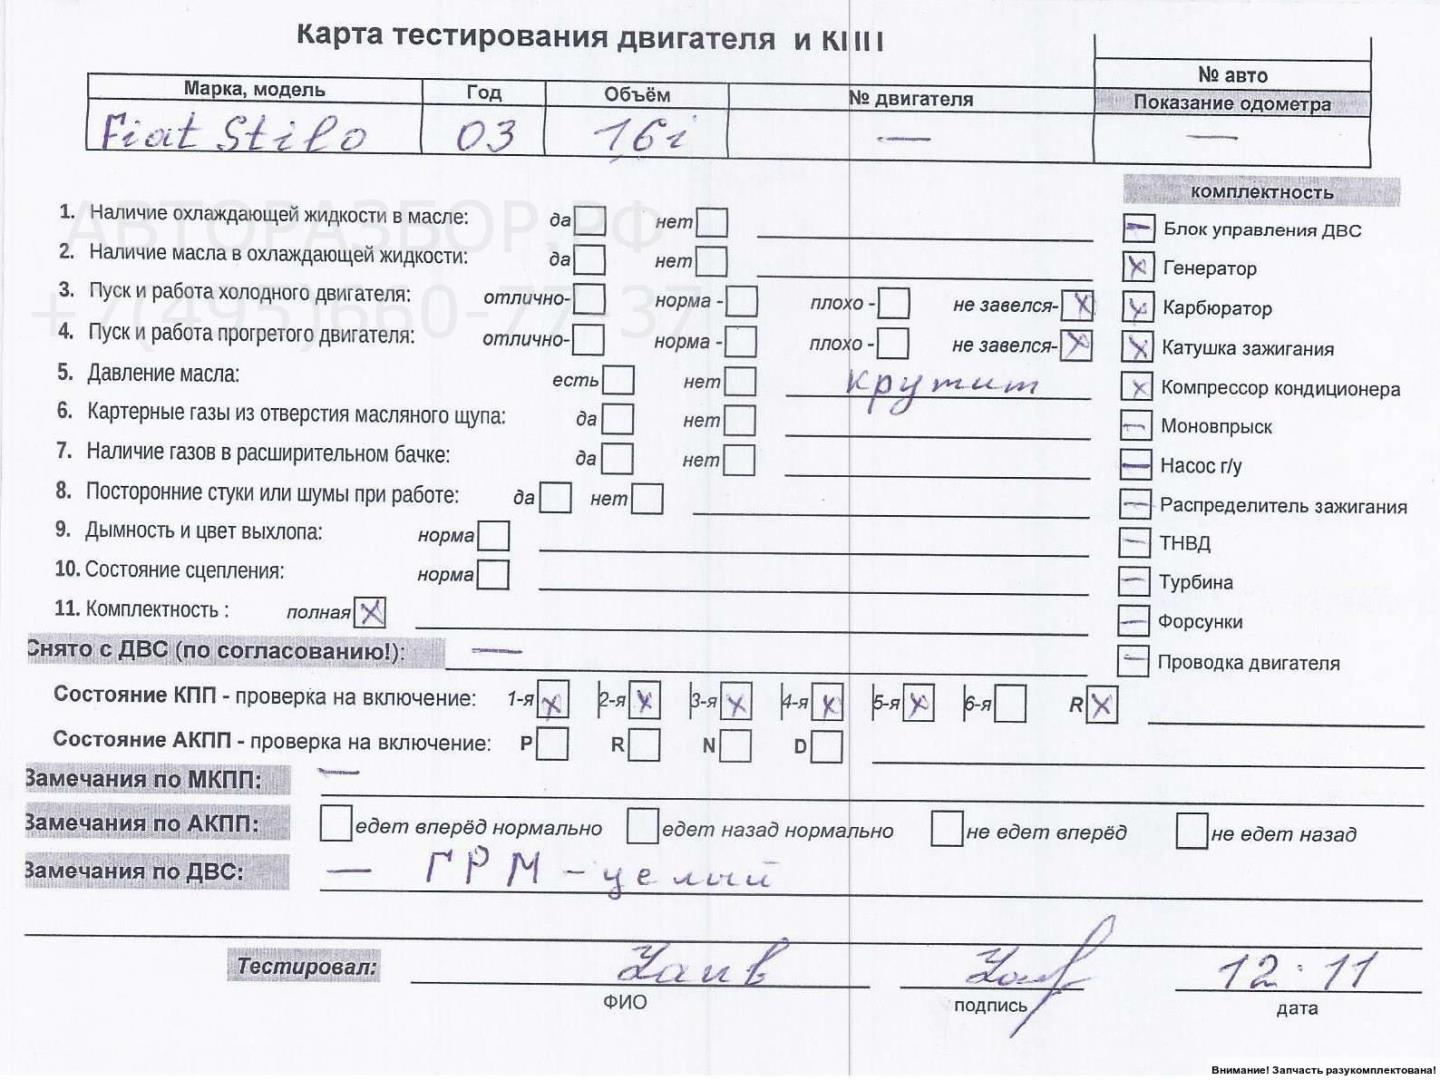 Карта тестирования двигателя и КПП
№ авто
Марка, модель Год Объём № двигателя Показание одометра
Fiat Stilo 03 1,6i — —
комплектность
1. Наличие охлаждающей жидкости в масле: да нет
Блок управления ДВС
2. Наличие масла в охлаждающей жидкости: да нет
Генератор
3. Пуск и работа холодного двигателя: отлично- норма - плохо - не завелся-
Карбюратор
4. Пуск и работа прогретого двигателя: отлично- норма - плохо - не завелся-
Катушка зажигания
5. Давление масла: есть нет крутит
Компрессор кондиционера
6. Картерные газы из отверстия масляного щупа: да нет
Моновпрыск
7. Наличие газов в расширительном бачке: да нет
Насос г/у
8. Посторонние стуки или шумы при работе: да нет
Распределитель зажигания
9. Дымность и цвет выхлопа: норма
ТНВД
10. Состояние сцепления: норма
Турбина
11. Комплектность : полная
Форсунки
Снято с ДВС (по согласованию!): —
Проводка двигателя
Состояние КПП - проверка на включение: 1-я 2-я 3-я 4-я 5-я 6-я R
Состояние АКПП - проверка на включение: P R N D
Замечания по МКПП: —
Замечания по АКПП: едет вперёд нормально едет назад нормально не едет вперёд не едет назад
Замечания по ДВС: — ГРМ - целый
Тестировал: 12.11
ФИО подпись дата
АВТОРАЗБОР.РФ
+7(495)660-77-37
Внимание! Запчасть разукомплектована!